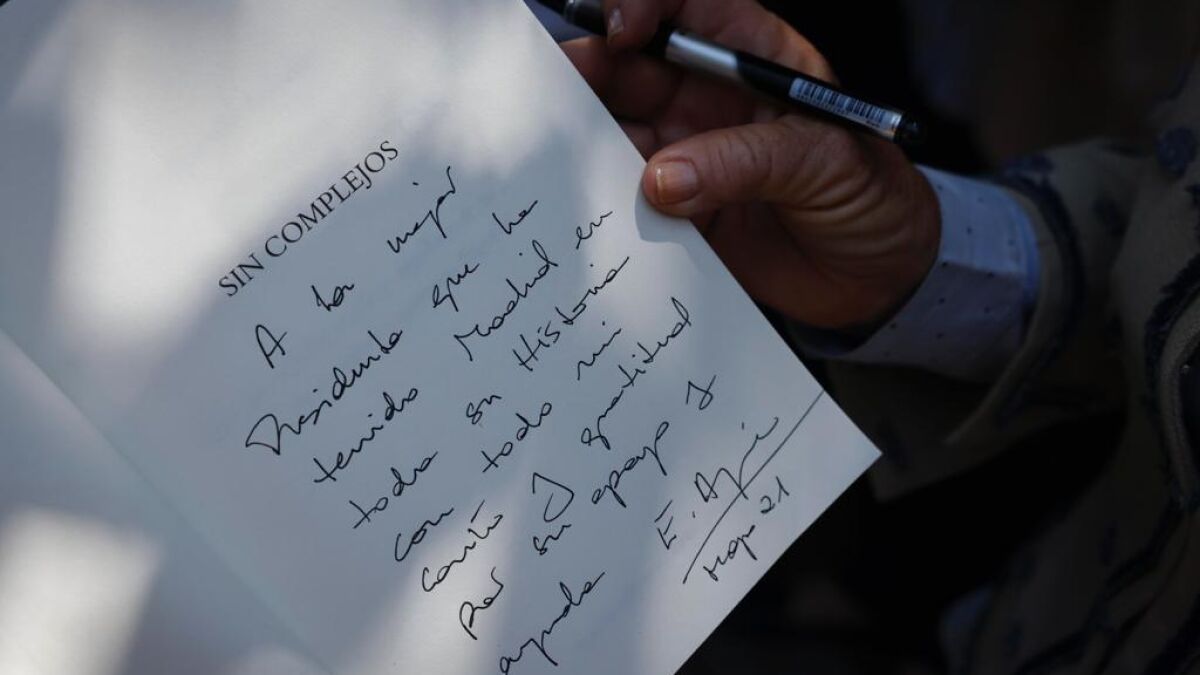 SIN COMPLEJOS
A la mejor
Presidenta que ha
tenido Madrid en
toda su Historia
con todo mi
cariño y gratitud
por su apoyo y
ayuda
E. Agui
Mayo 21